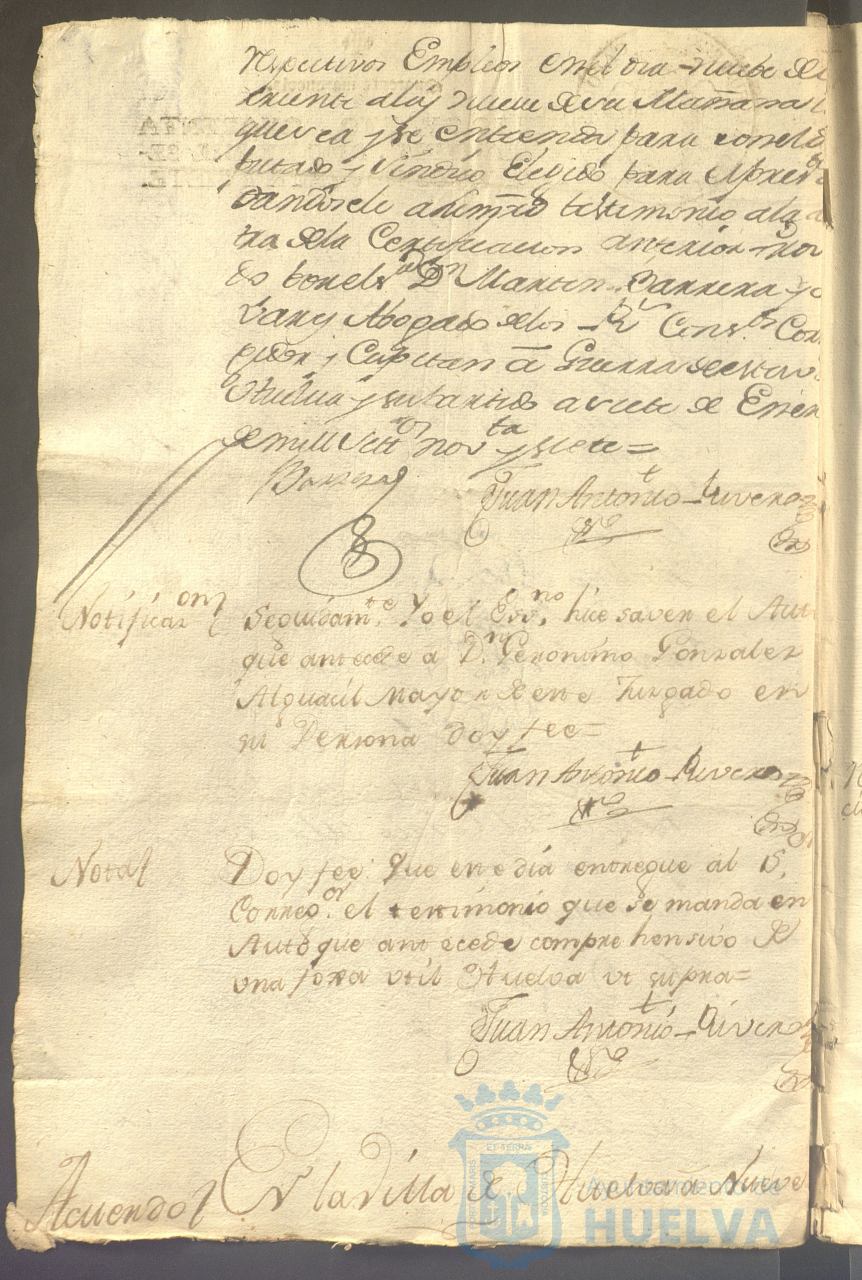 respectivos Empleos en el dia nuebe del
corriente a las nueve de su Mañana
que vea y se entienda para con el
putado y Sindico Elegido para
dandosele a dho testimonio a la
tra de la Certificacion anterior
do por el Sr Dn Martin Barrera y
Abogado de los Rs Consos Cor
gidor y Capitan a Guerra de esta
Huelva y su partido a siete de Ener
de mill Settos novta y siete =
Barrera
Juan Antonio Rivera
Notificaon
Seguidamte Yo el Essno hice saver el Aut
que antecede a Dn Geronimo Gonzalez
Alguacil Mayor de este Juzgado en
su Persona doy fee =
Juan Antonio Rivera
Nota
Doy fee: Que en este dia entregue al S.
Correo.or el testimonio que se manda en
Auto que antecede comprehensivo de
una foxa util Huelva ut supra =
Juan Antonio Rivera
Acuerdo
En la Villa de Huelva a Nueve
Ayuntamiento de
HUELVA